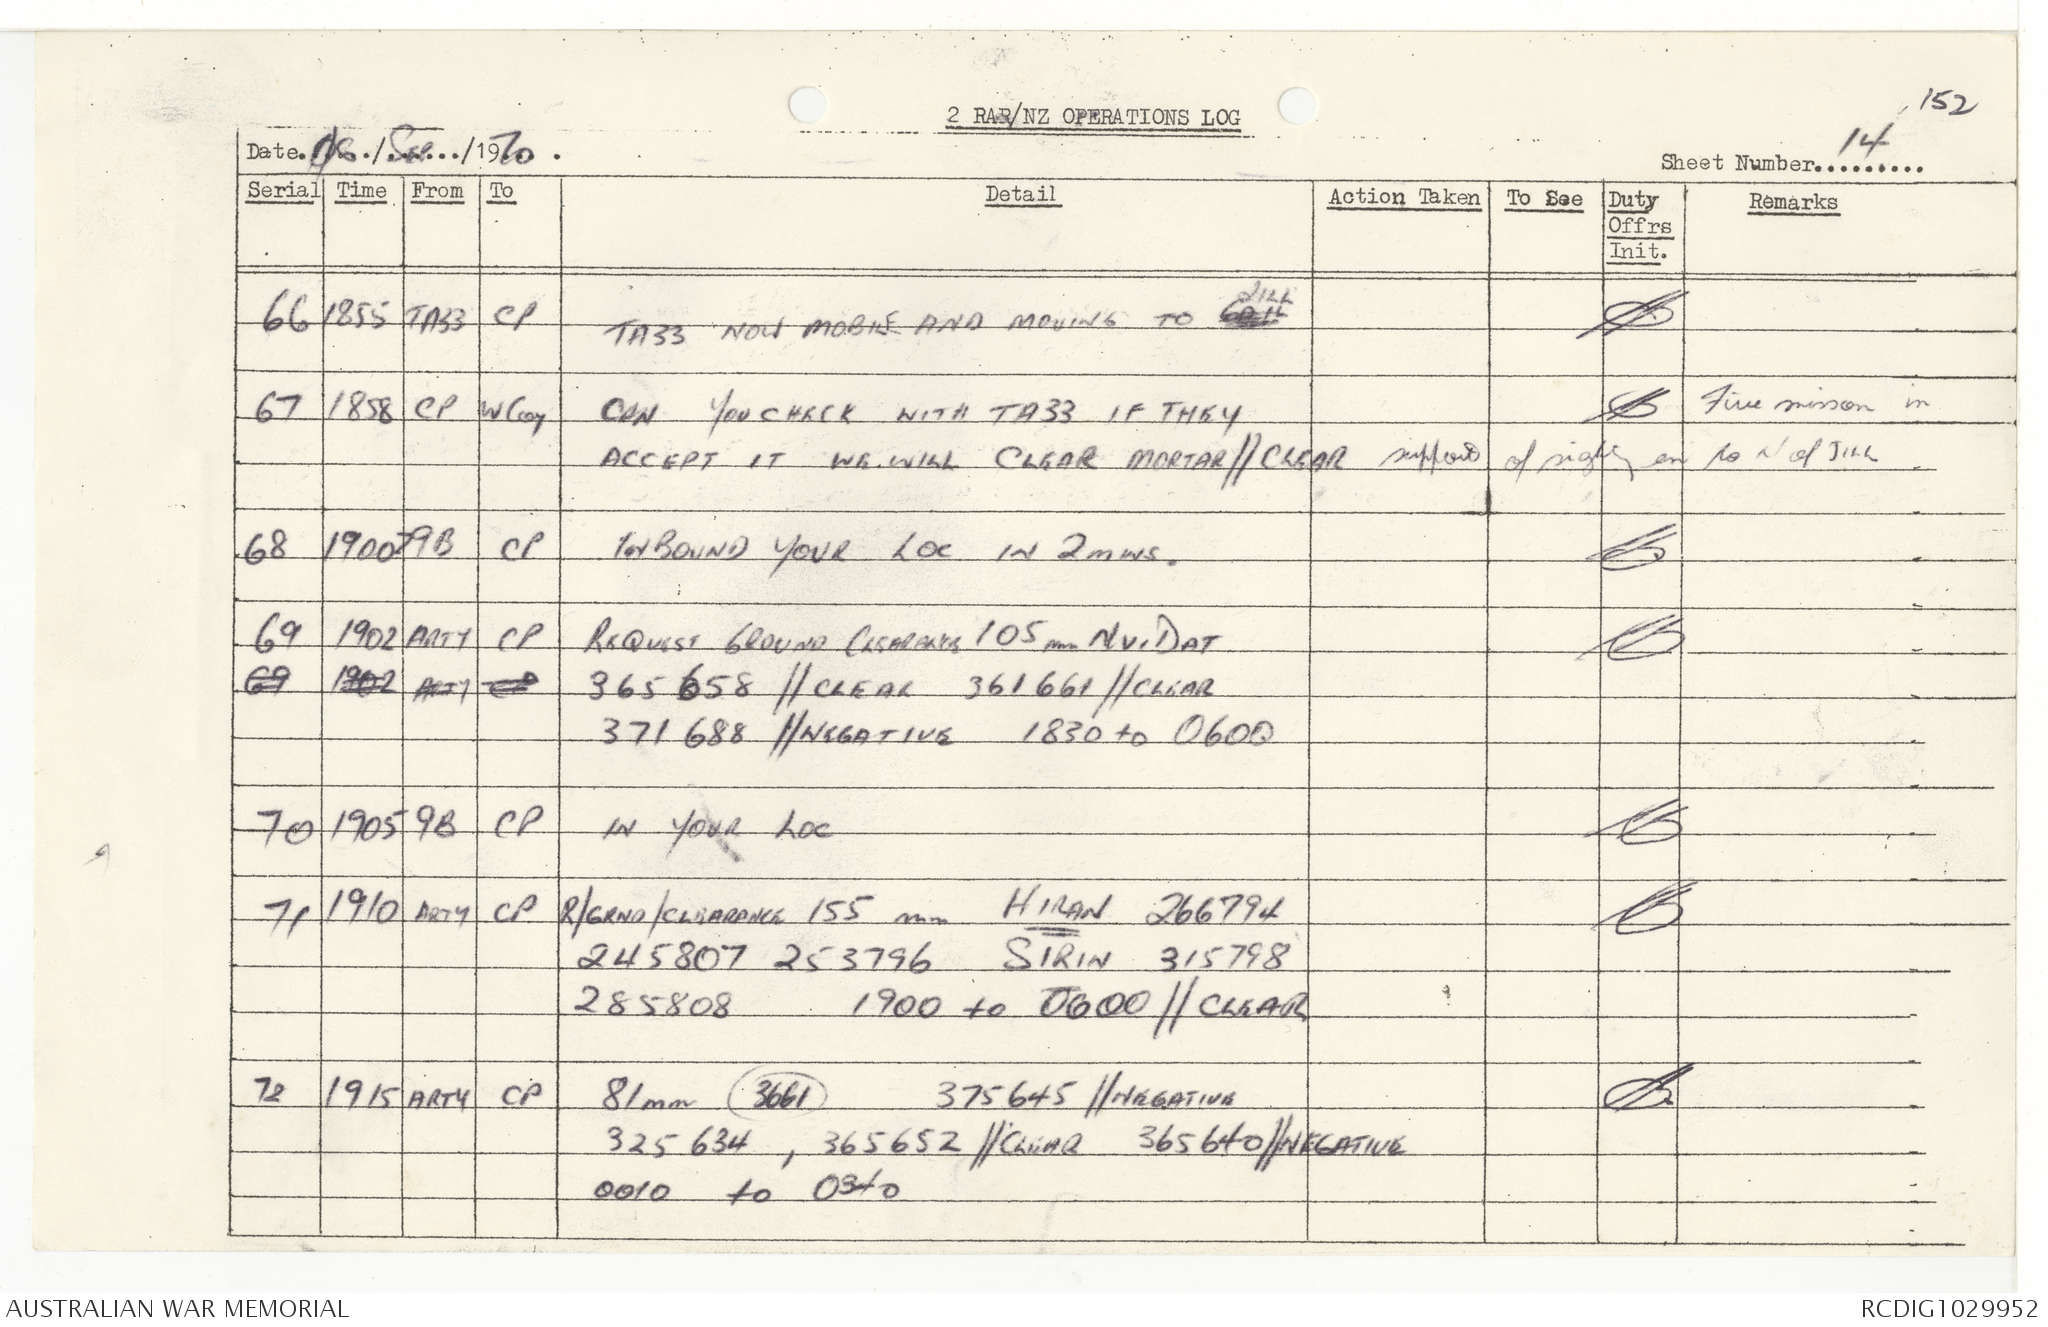 152
2 RAR/NZ OPERATIONS LOG
Date. /Sep/1970.
Sheet Number 14
Serial Time From To Detail Action Taken To See Duty Offrs Init. Remarks
JILL
66 1855 TA33 CP TA33 NOW MOBILE AND MOVING TO
67 1858 CP W Coy CAN YOU CHECK WITH TA33 IF THEY Fire misson in
ACCEPT IT WE WILL CLEAR MORTAR//CLEAR support of to N of JILL
68 1900 79B CP INBOUND YOUR LOC IN 2 MINS.
69 1902 ARTY CP REQUEST GROUND CLEARANCE 105 mm NUI DAT
69 1902 ARTY CP 365658 //CLEAR 361661 //CLEAR
371688 //NEGATIVE 1830 to 0600
70 1905 9B CP IN YOUR LOC
71 1910 ARTY CP R/GRND/CLEARANCE 155 mm HIRAN 266794
245807 253796 SIRIN 315798
285808 1900 to 0600 //CLEAR
72 1915 ARTY CP 81mm 3661 375645 //NEGATIVE
325634, 365652 //CLEAR 365640//NEGATIVE
0010 to
AUSTRALIAN WAR MEMORIAL RCDIG1029952